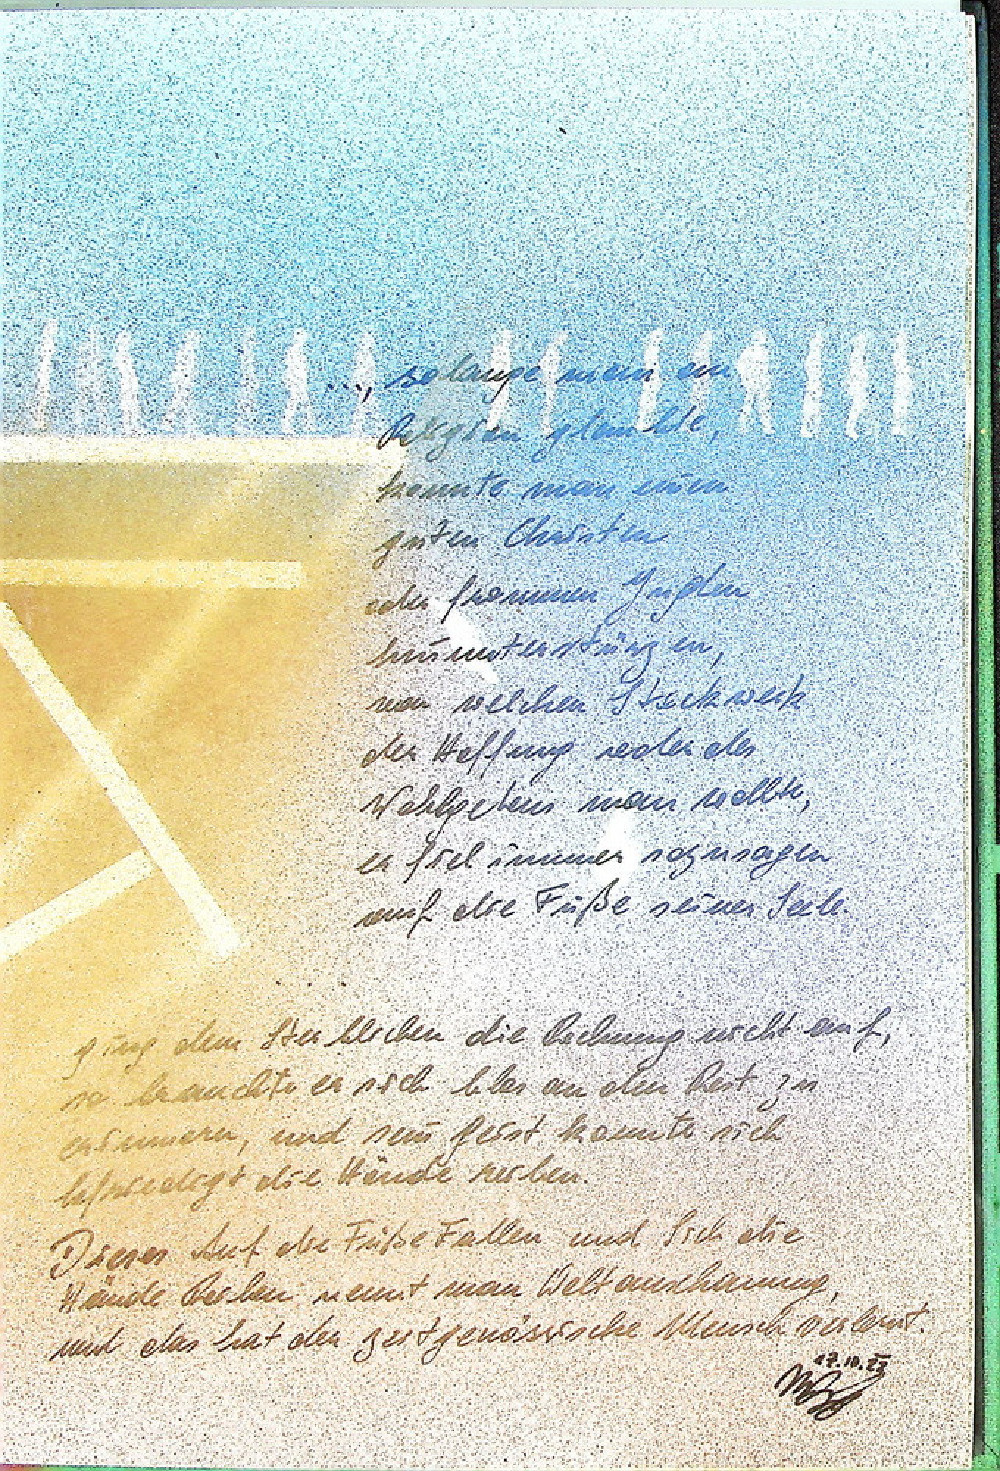 ..., solange man an
Religion glaubte,
konnte man einen
guten Christen
oder frommen Juden
hinunterstürzen,
von welchem Stockwerk
der Hoffnung oder des
Wohlergehens man wollte,
er fiel immer sozusagen
auf die Füße seiner Seele.
ging dem Sterblichen die Rechnung nicht auf,
so brauchte er sich blos an den Rest zu
erinnern, und sein Geist konnte sich
befriedigt die Hände reiben.
Dieses Auf die Füße Fallen und Sich die
Hände Reiben nennt man Weltanschauung,
und das hat der zeitgenössische Mensch verlernt.
17.10.23